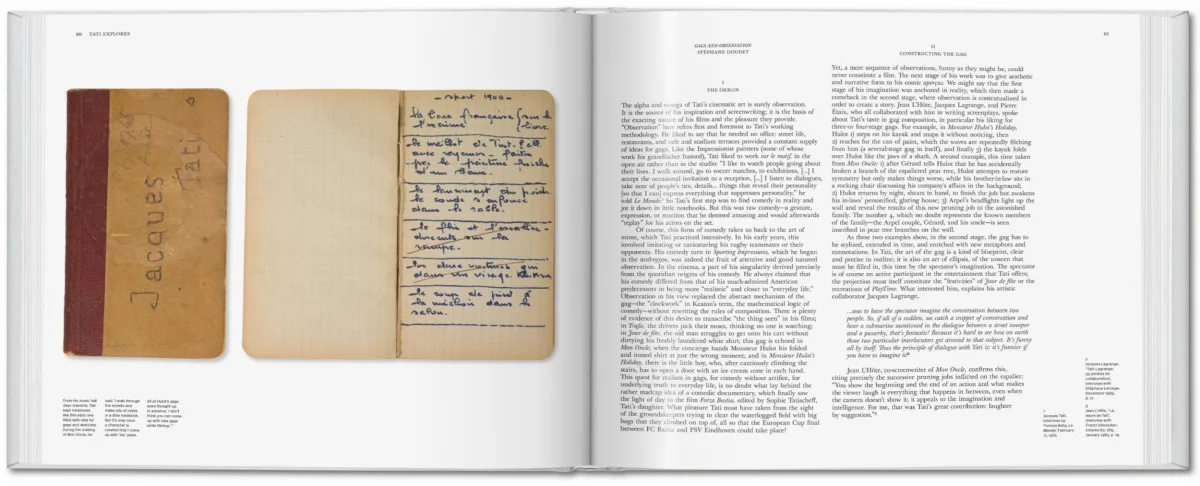 60 TATI EXPLORES
Jacques
Tati
— sport 1900 —
la boxe française
le maillot de
le lancement du poids
dans le sable.
sur la
rampe.
les deux
dans un virage
le coup de pied
la mâchoire dans le
salon.
From his music hall
days onwards, Tati
kept notebooks
like this early one
filled with idea for
gags and sketches.
During the making
of Mon Oncle, he
said: "I walk through
the streets and
make lots of notes
in a little notebook.
But it's only once
a character is
created that I come
up with her jokes.
All of Hulot's gags
were thought up
in advance. I don't
think you can come
up with new gags
while filming."
61
GAGS AND OBSERVATION
STÉPHANE GOUDET
I
THE ORIGIN
The alpha and omega of Tati's cinematic art is surely observation.
It is the source of his inspiration and screenwriting; it is the basis of
the exacting nature of his films and the pleasure they provide.
"Observation" here refers first and foremost to Tati's working
methodology. He liked to say that he needed no office: street life,
restaurants, and café and stadium terraces provided a constant supply
of ideas for gags. Like the Impressionist painters (some of whose
work his grandfather framed), Tati liked to work sur le motif, in the
open air rather than in the studio: "I like to watch people going about
their lives. I walk around, go to soccer matches, to exhibitions, [...] I
accept the occasional invitation to a reception, [...] I listen to dialogues,
take note of people's tics, details... things that reveal their personality
[so that I can] express everything that suppresses personality," he
told Le Monde.¹ So Tati's first step was to find comedy in reality and
jot it down in little notebooks. But this was raw comedy—a gesture,
expression, or reaction that he deemed amusing and would afterwards
"replay" for his actors on the set.
Of course, this form of comedy takes us back to the art of
mime, which Tati practiced intensively. In his early years, this
involved imitating or caricaturing his rugby teammates or their
opponents. His comedy turn in Sporting Impressions, which he began
in the mid-1930s, was indeed the fruit of attentive and good natured
observation. In the cinema, a part of his singularity derived precisely
from the quotidian origins of his comedy. He always claimed that
his comedy differed from that of his much-admired American
predecessors in being more "realistic" and closer to "everyday life."
Observation in his view replaced the abstract mechanism of the
gag—the "clockwork" in Keaton's term, the mathematical logic of
comedy—without rewriting the rules of composition. There is plenty
of evidence of this desire to transcribe "the thing seen" in his films;
in Trafic, the drivers pick their noses, thinking no one is watching;
in Jour de fête, the old man struggles to get onto his cart without
dirtying his freshly laundered white shirt; this gag is echoed in
Mon Oncle, when the concierge hands Monsieur Hulot his folded
and ironed shirt at just the wrong moment; and in Monsieur Hulot's
Holiday, there is the little boy, who, after cautiously climbing the
stairs, has to open a door with an ice cream cone in each hand.
This quest for realism in gags, for comedy without artifice, for
underlying truth to everyday life, is no doubt what lay behind the
rather madcap idea of a comedic documentary, which finally saw
the light of day in the film Forza Bastia, edited by Sophie Tatischeff,
Tati's daughter. What pleasure Tati must have taken from the sight
of the groundskeepers trying to clear the waterlogged field with big
bags that they climbed on top of, all so that the European Cup final
between FC Bastia and PSV Eindhoven could take place!
II
CONSTRUCTING THE GAG
Yet, a mere sequence of observations, funny as they might be, could
never constitute a film. The next stage of his work was to give aesthetic
and narrative form to his comic aperçus. We might say that the first
stage of his imagination was anchored in reality, which then made a
comeback in the second stage, where observation is contextualised in
order to create a story. Jean L'Hôte, Jacques Lagrange, and Pierre
Étaix, who all collaborated with him in writing screenplays, spoke
about Tati's taste in gag composition, in particular his liking for
three-or four-stage gags. For example, in Monsieur Hulot's Holiday,
Hulot 1) steps on his kayak and snaps it without noticing, then
2) reaches for the can of paint, which the waves are repeatedly filching
from him (a several-stage gag in itself), and finally 3) the kayak folds
over Hulot like the jaws of a shark. A second example, this time taken
from Mon Oncle: 1) after Gérard tells Hulot that he has accidentally
broken a branch of the espaliered pear tree, Hulot attempts to restore
symmetry but only makes things worse, while his brother-in-law sits in
a rocking chair discussing his company's affairs in the background;
2) Hulot returns by night, shears in hand, to finish the job but awakens
his in-laws' personified, glaring house; 3) Arpel's headlights light up the
wall and reveal the results of this new pruning job to the astonished
family. The number 4, which no doubt represents the known members
of the family—the Arpel couple, Gérard, and his uncle—is seen
inscribed in pear tree branches on the wall.
As these two examples show, in the second stage, the gag has to
be stylized, extended in time, and enriched with new metaphors and
connotations. In Tati, the art of the gag is a kind of blueprint, clear
and precise in outline; it is also an art of ellipsis, of the unseen that
must be filled in, this time by the spectator's imagination. The spectator
is of course an active participant in the entertainment that Tati offers;
the projection must itself constitute the "festivities" of Jour de fête or the
recreations of PlayTime. What interested him, explains his artistic
collaborator Jacques Lagrange,
...was to have the spectator imagine the conversation between two
people. So, if all of a sudden, we catch a snippet of conversation and
hear a submarine mentioned in the dialogue between a street sweeper
and a passerby, that's fantastic! Because it's hard to see how on earth
those two particular interlocutors got around to that subject. It's funny
all by itself. Thus the principle of dialogue with Tati is: it's funnier if
you have to imagine it.²
Jean L'Hôte, co-screenwriter of Mon Oncle, confirms this,
citing precisely the successive pruning jobs inflicted on the espalier:
"You show the beginning and the end of an action and what makes
the viewer laugh is everything that happens in between, even when
the camera doesn't show it; it appeals to the imagination and
intelligence. For me, that was Tati's great contribution: laughter
by suggestion."³
1
Jacques Tati,
interview by
Yvonne Baby, Le
Monde, February
2
Jacques Lagrange,
interview with
Stéphane Goudet,
3
Jean L'Hôte,
interview with
January 1989, p. 19.